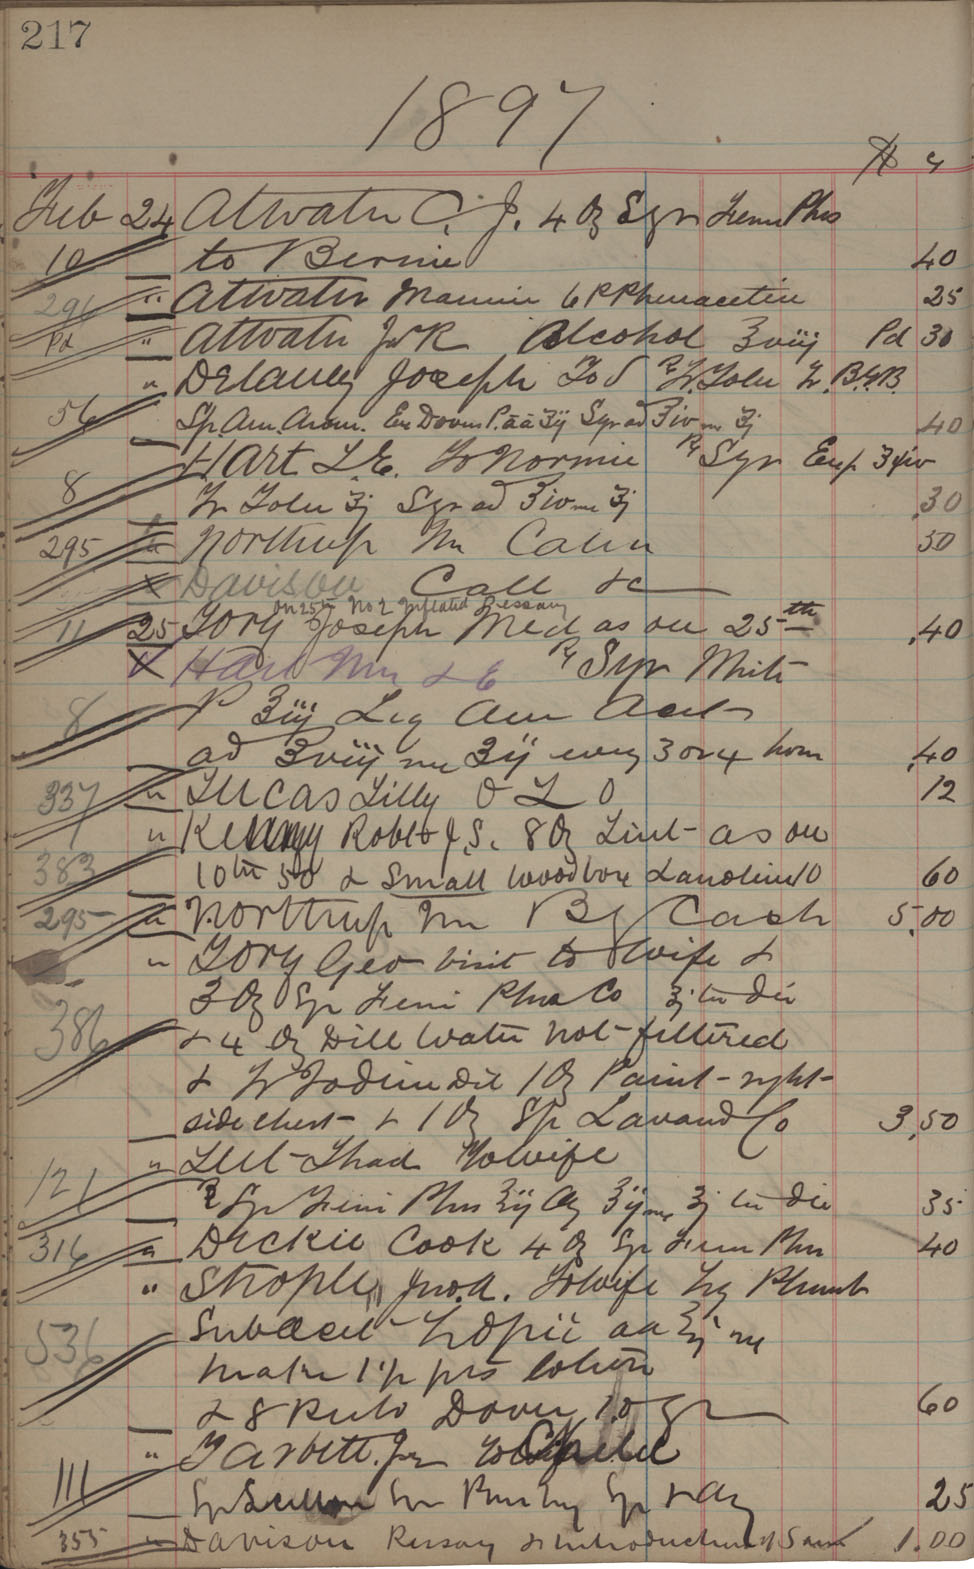 217
1897
$ c
Feb 24 Atwater C. J. 4 Oz Syr Ferri Phos
10 to Bernie 40
291 " Atwater Mamie 6 PPhenacetin 25
Pd " Atwater J R Alcohol ℥viij Pd 30
" Delaney Joseph ℞ Tr. Tolu
56 Sp. Am. Arom. Dovers P. āā ℥ij Syr ad ℥iv ʒj 40
Hart L E. to Normie ℞ Syr
8 Tr Tolu ℥j Syr ad ℥iv ʒj .30
295 " Northrup Wm Calvin 50
X Davison Call &c
on 25th No 2 Inflated Pessary
11 25 Tory Joseph Med as on 25th .40
X Hart Mrs L E ℞ Syr
8 ℥iij Liq Am Acet
ad ℥viij ʒij every 3 or 4 hours .40
337 " Lucas Lilly O L O 12
" Robt J. S. 8 Oz Lint as on
383 10th 50 & Small woodbox Lanoline 10 60
295 " Northrup Wm By Cash 5.00
" Tory Geo visit to wife &
3 Oz Sp Ferri Phos Co ʒj ter die
386 & 4 Oz Dill Water not filtered
& Tr Iodine Dil 1 Oz Paint right
side chest & 1 Oz Sp Lavand Co 3.50
121 " Thad to wife
℞ Syr Ferri Phos ℥ij Aq ℥ij ʒj ter die 35
316 " Dickie Cook 4 Oz Syr Ferri Phos 40
" Strople Jno. A. to wife Liq Plumb
536 Subacet Tr Opii aa ℥j
make 1 pts lotion
& 8 Pulv Dover 10 gr 60
" Tarbett Jas to Child
111 25
355 " Davison Pessary & introduction of Same 1.00